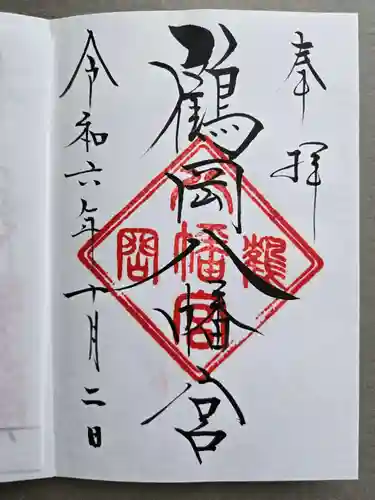 奉拝
鶴岡八幡宮
令和六年十月二日
鶴岡八幡宮